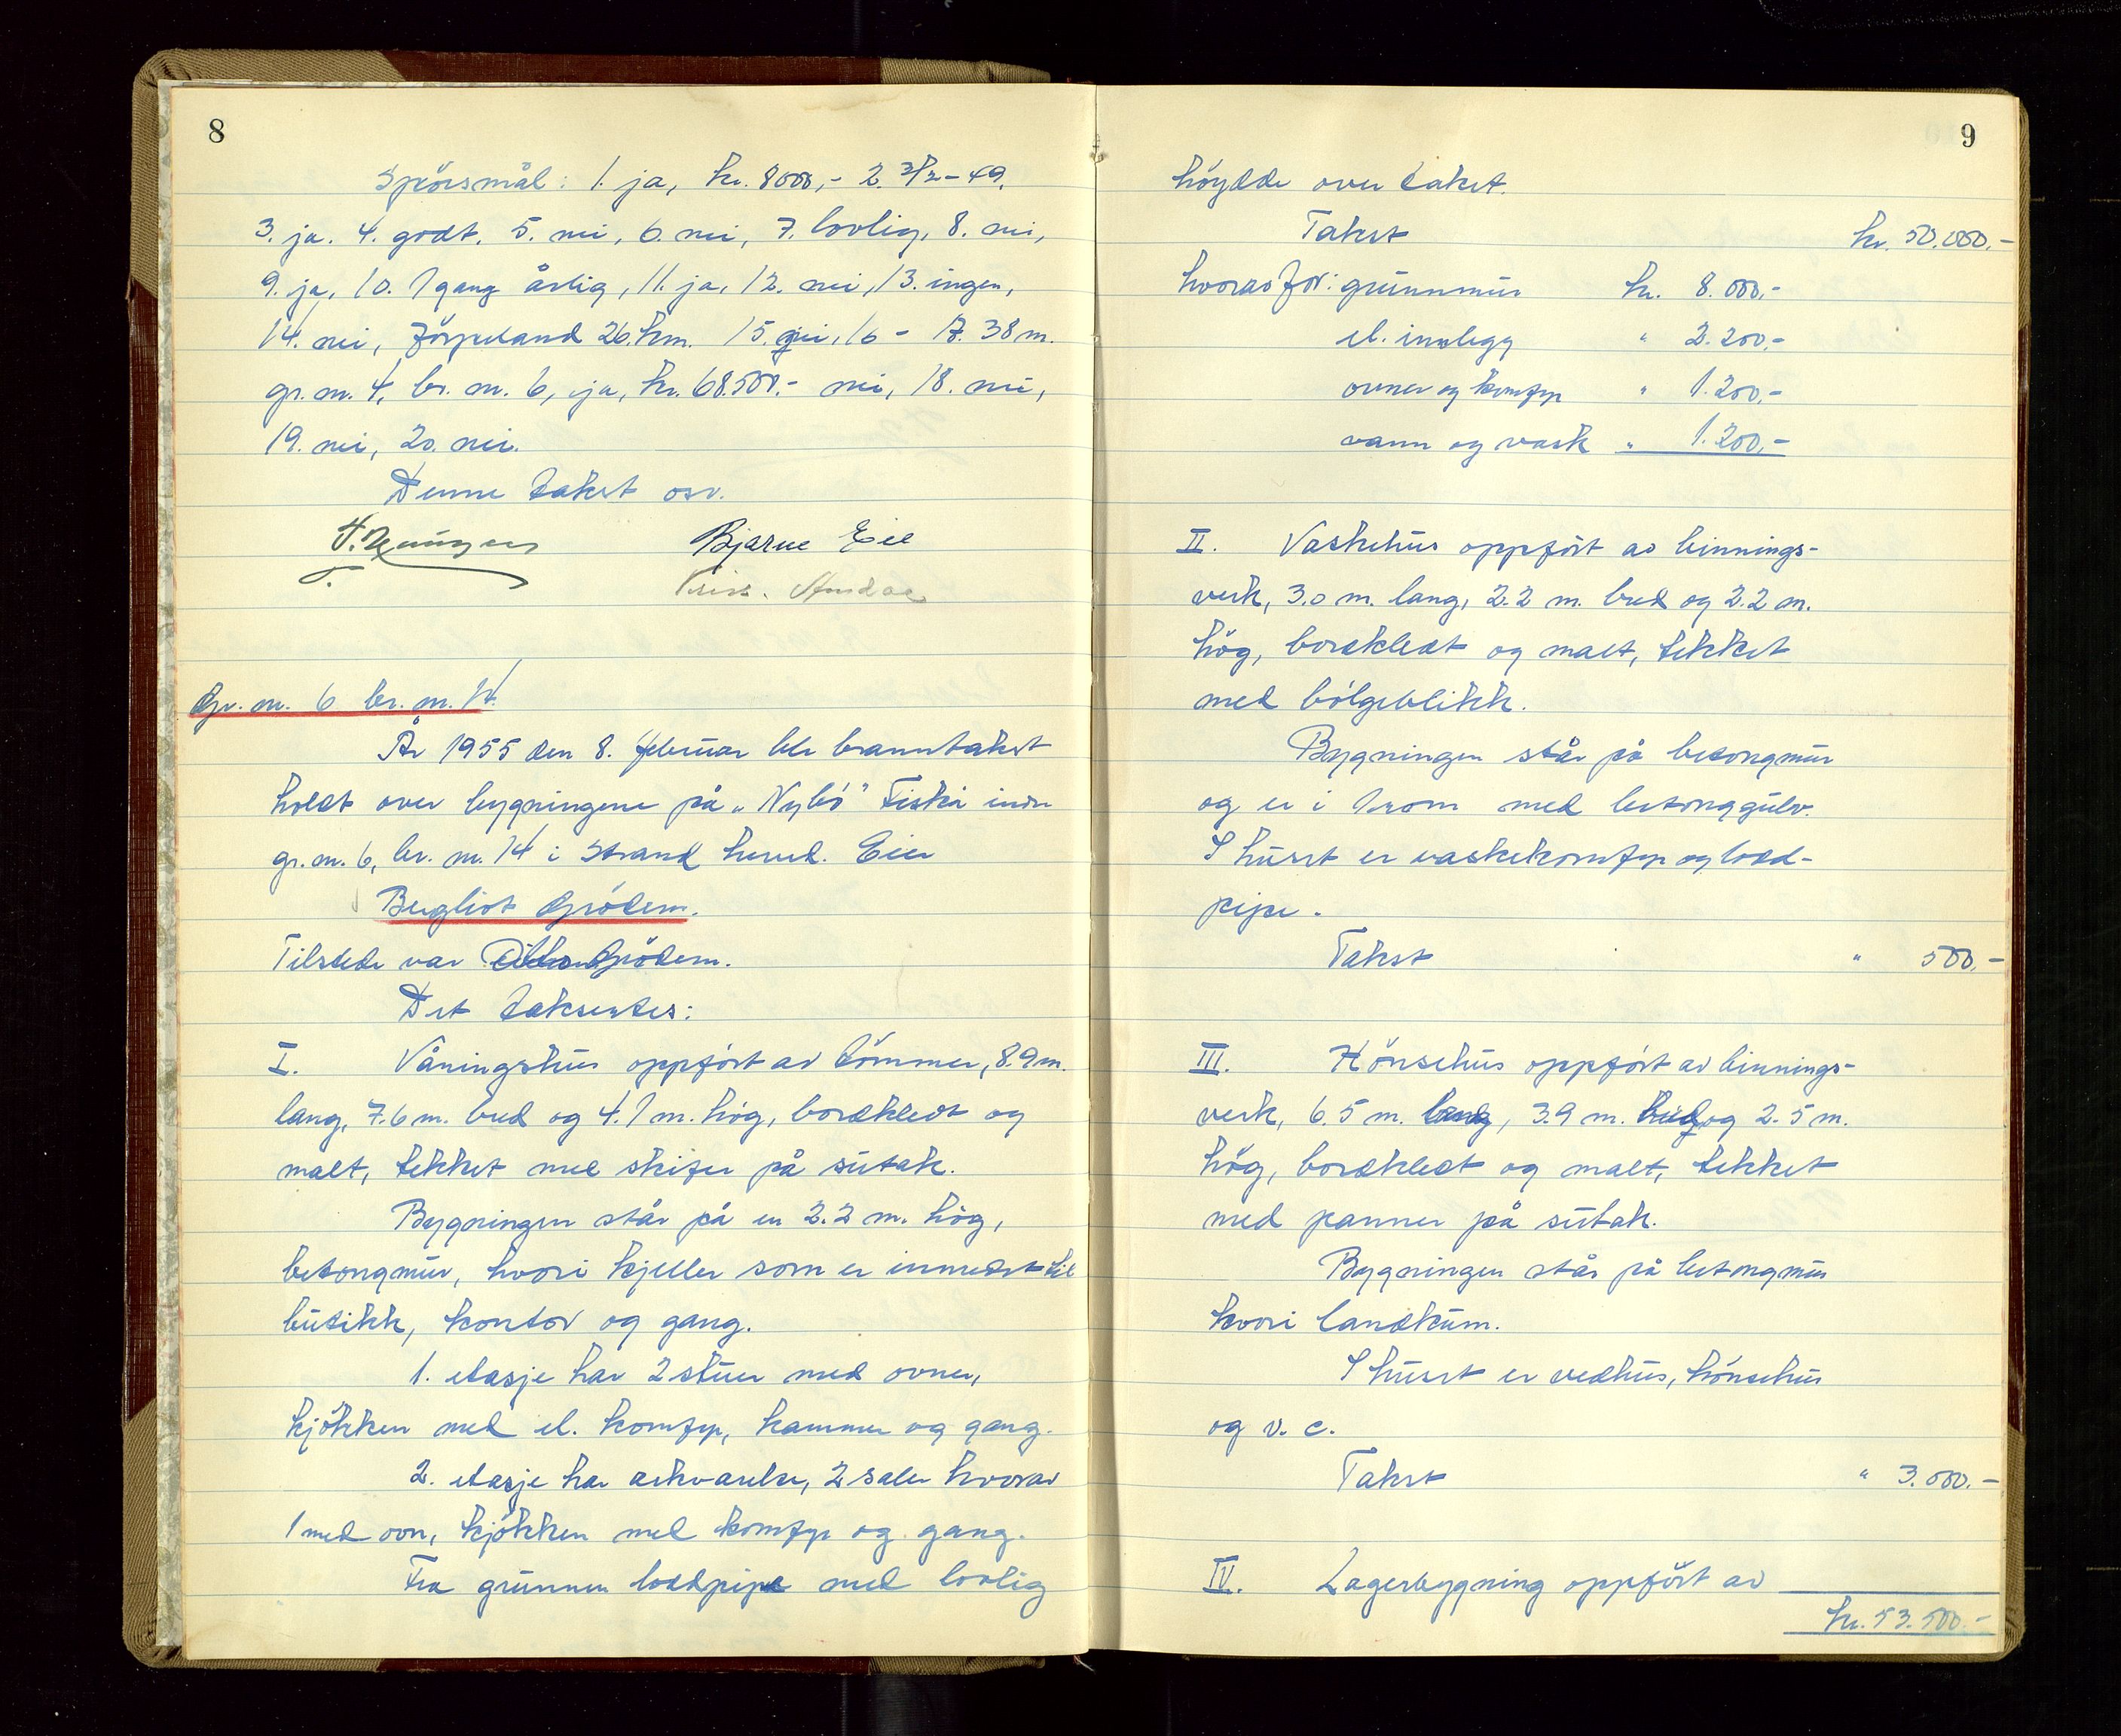 8
Spörsmål: 1. ja, kr. 8000,- 2. 3/2-49.
3. ja. 4. godt. 5. nei, 6. nei, 7. lovlig, 8. nei,
9. ja, 10. 1 gang årlig, 11. ja, 12. nei, 13. ingen,
14. nei, Jörpeland 26. km. 15. nei, 16 - 17. 38 m.
gr. nr. 4, br. nr. 6, ja, kr. 68.500.- nei, 18. nei,
19. nei, 20. nei.
Denne takst osv.
Bjarne Eie
Gr. nr. 6 br. nr. 14.
År 1955 den 8. februar ble branntakst
holdt over bygningene på "Nybö" Fiskå indre
gr. nr. 6, br. nr. 14 i Strand herred. Eier
Bergliot Grödem.
Tilstede var Grödem.
Det taksertes:
I. Våningshus oppfört av tömmer, 8.9 m.
lang, 7.6 m. bred og 4.1 m. hög, bordkledt og
malt, tekket med skifer på sutak.
Bygningen står på en 2.2 m. hög,
betongmur, hvori kjeller som er innredet til
butikk, kontor og gang.
1. etasje har 2 stuer med ovner,
kjökken med el. komfyr, kammer og gang.
2. etasje har arkværelse, 2 saler hvorav
1 med ovn, kjökken med komfyr og gang.
Fra grunnen loddpipe med lovlig
9
höydde over taket.
Takst kr. 50.000.-
hvorav for: grunnmur kr. 8.000,-
el. innlegg " 2.200,-
ovner og komfyr " 1.200,-
vann og vask " 1.200,-
II. Vaskehus oppfört av binnings-
verk, 3.0 m. lang, 2.2 m. bred og 2.2 m.
hög, bordkledt og malt, tekket
med bölgeblikk.
Bygningen står på betongmur
og er i 1 rom med betonggulv.
I huset er vaskekomfyr og lodd-
pipe.
Takst " 500.-
III. Hönsehus oppfört av binnings-
verk, 6.5 m. lang, 3.9 m. bred og 2.5 m.
hög, bordkledt og malt, tekket
med panner på sutak.
Bygningen står på betongmur
hvori landkum.
I huset er vedhus, hönsehus
og v. c.
Takst " 3.000.-
IV. Lagerbygning oppfört av
kr. 53.500.-